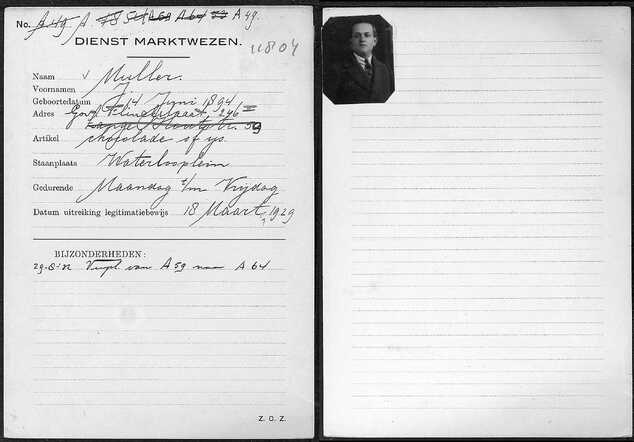 No. A 49 A 78 54 A 59 A 64 53 A 49.
DIENST MARKTWEZEN.
11804
Naam v Muller.
Voornamen J.
Geboortedatum 14 Juni 1894
Adres Govt Flinckstraat 246 II
59
Artikel chokolade of ijs.
Staanplaats Waterlooplein
Gedurende Maandag t/m Vrijdag
Datum uitreiking legitimatiebewijs 18 Maart 1929
BIJZONDERHEDEN:
Verpl van A 59 naar A 64
Z. O. Z.